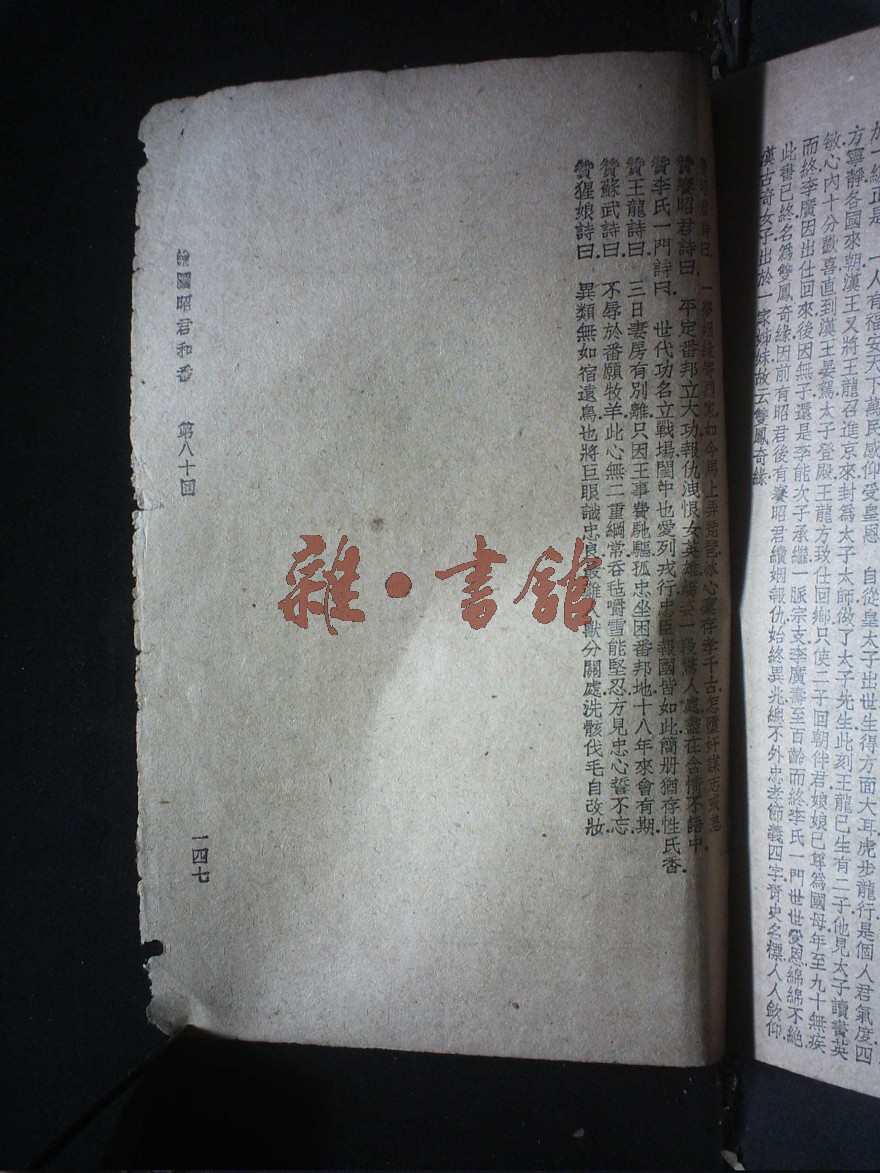 一人有福安天下萬民感仰受皇恩 自從皇太子出世生得方面大耳虎步龍行是個人君氣度四
方寧靜各國來朝漢王又將王龍召進京來封為太子太師做了太子先生此刻王龍已生有二子他見太子讀書英
敏心內十分歡喜直到漢王晏駕太子登殿王龍方致仕回鄉只使二子回朝伴君娘娘已尊為國母年至九十無疾
而終李廣因出仕回來後因無子還是李能次子承繼一脈宗支李廣壽至百齡而終李氏一門世世受恩綿綿不絕
此書已終名為雙鳳奇緣因前有昭君後有賽昭君續姻報仇始終異兆總不外忠孝節義四字青史名標人人欽仰
漢古奇女子出於一家姊妹故云雙鳳奇緣
昭君詩曰 如今馬上弄琵琶冰心 存孝千古
贊賽昭君詩曰 平定番邦立大功報仇洩恨女英雄 一段驚人處盡在含情不語中
贊李氏一門詩曰 世代功名立戰場閨中也愛列戎行忠臣報國皆如此簡册猶存性氏香
贊王龍詩曰 三日妻房有別離只因王事費馳驅孤忠坐困番邦地十八年來會有期
贊蘇武詩曰 不辱於番願牧羊此心無二重綱常吞毡嚼雪能堅忍方見忠心誓不忘
贊猩娘詩曰 異類無如宿遠鳥也將巨眼識忠良 人獸分關處洗骸伐毛自改妝
繪圖昭君和番 第八十回
一四七
雜·書館